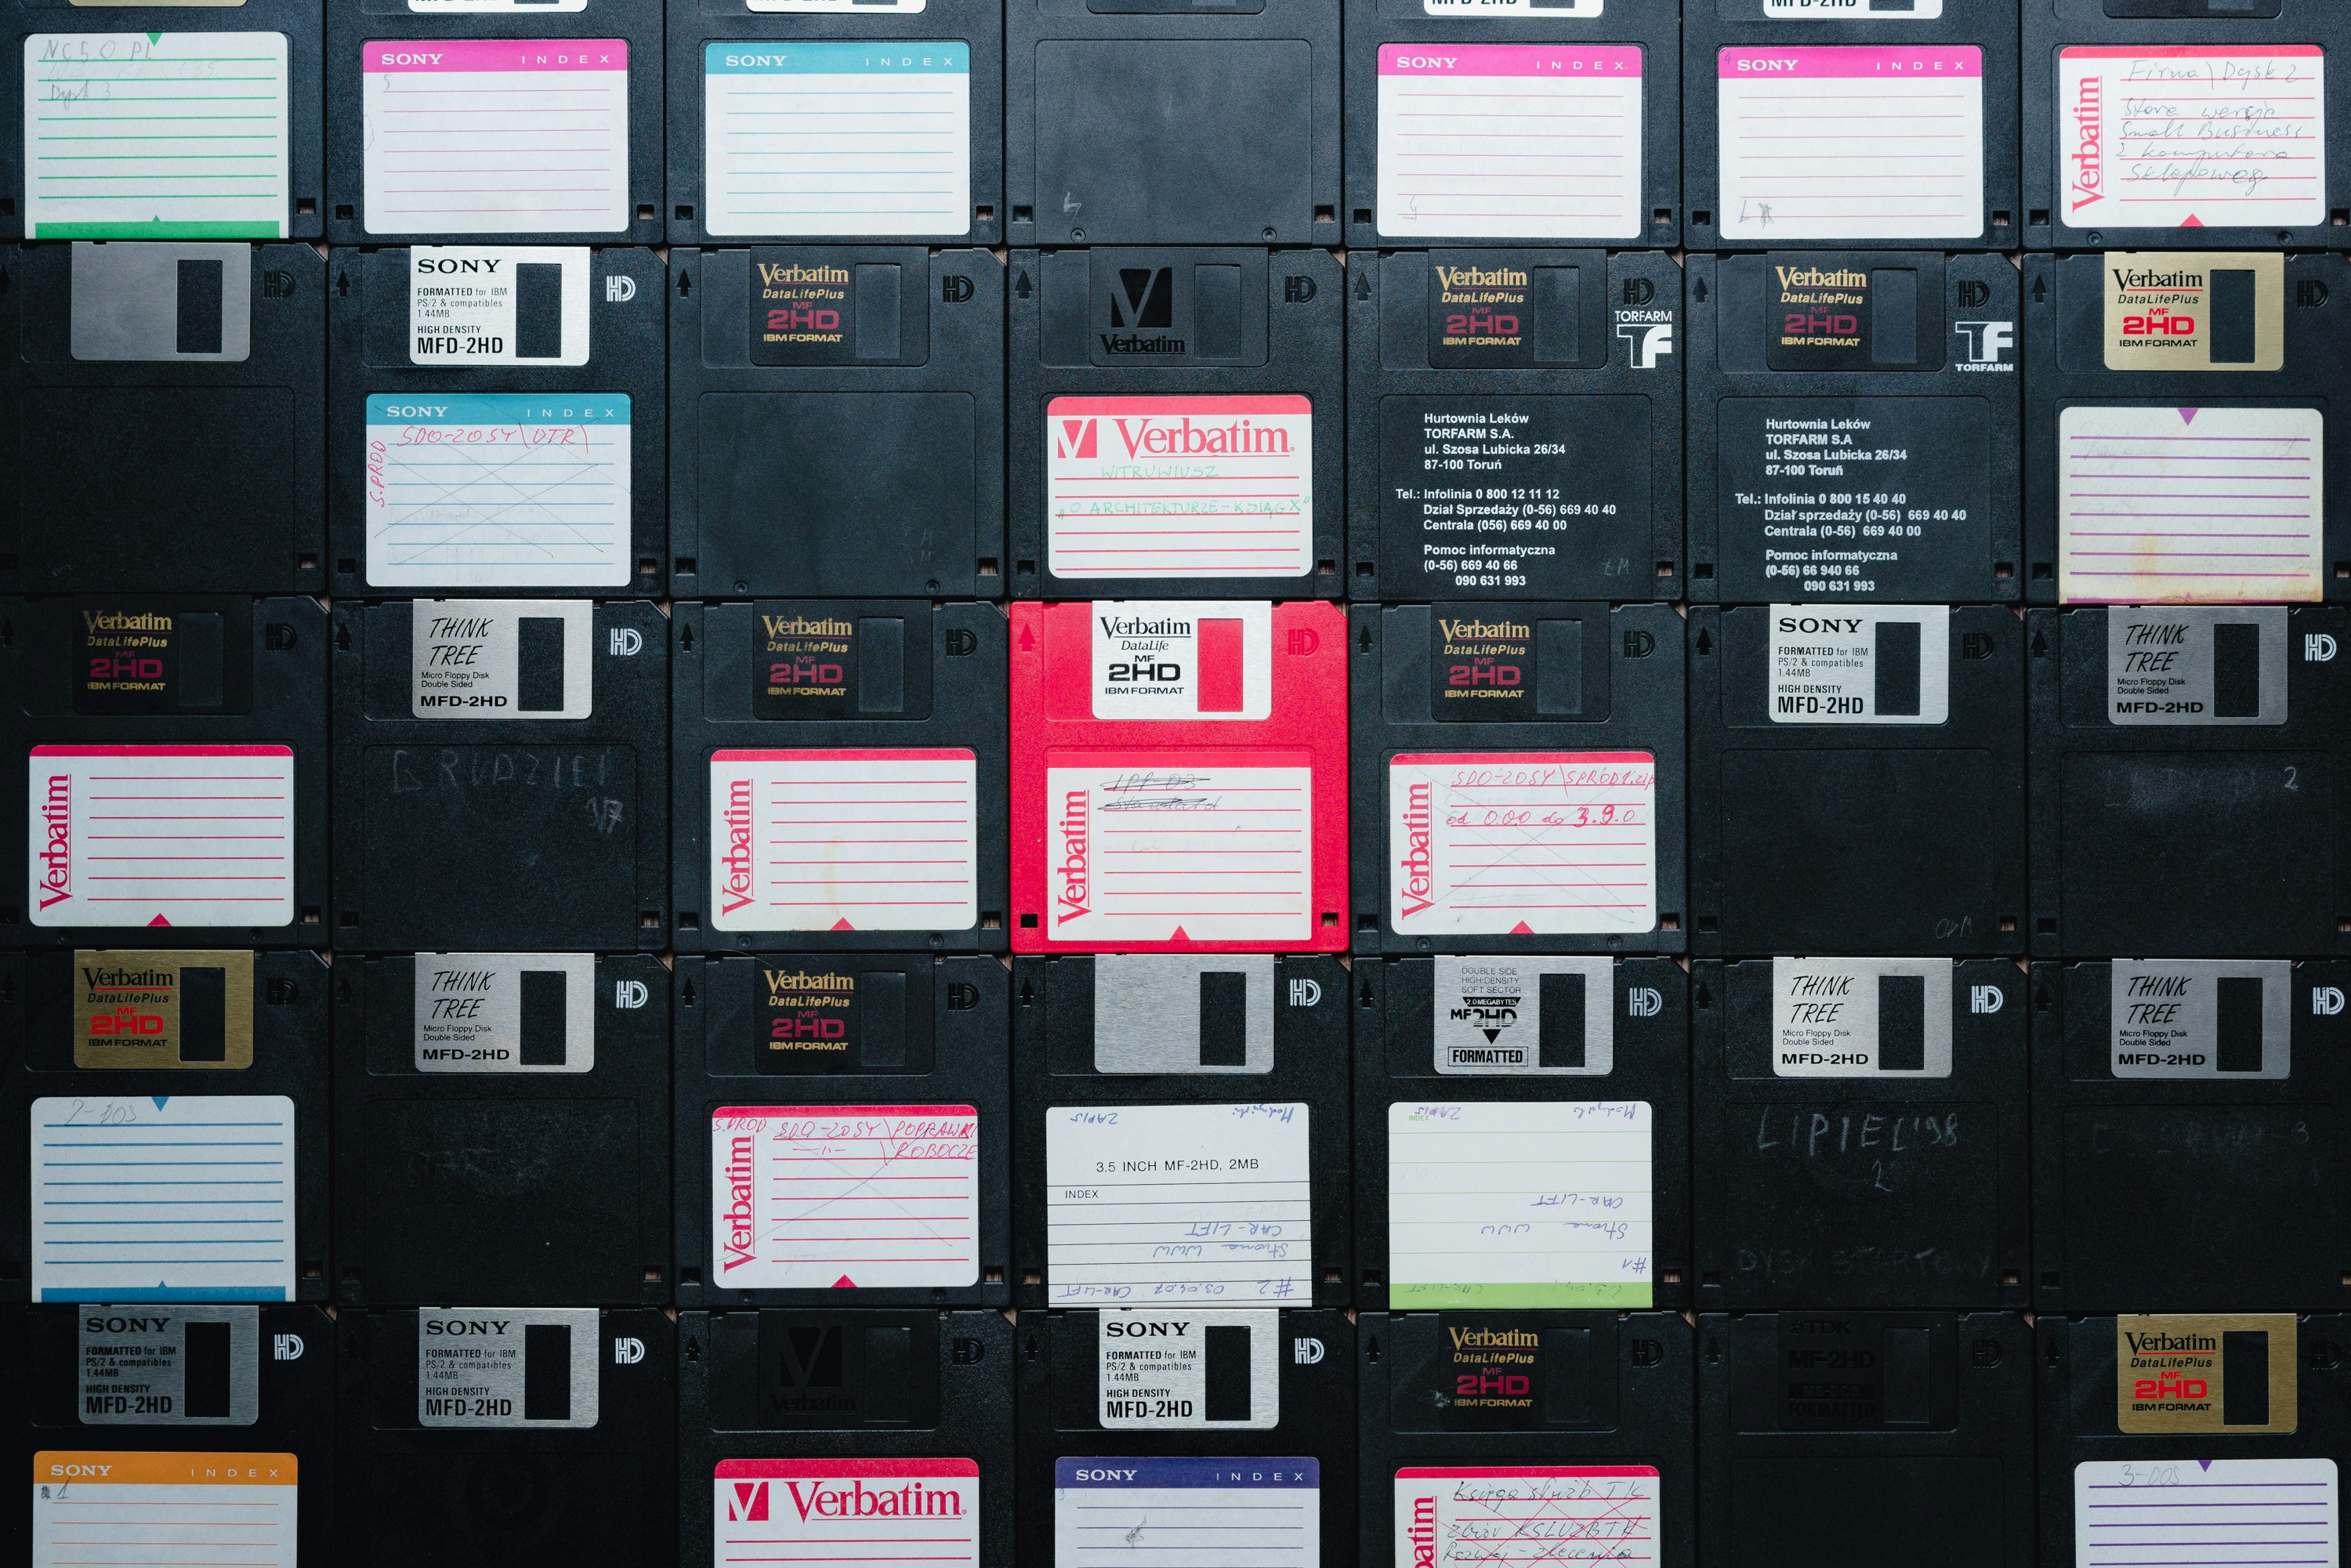 MFD-2HD
MFD-2HD
MFD-2HD
MFD-2HD
NC50 PL
Dysk 3
SONY INDEX
5
SONY INDEX
4
SONY INDEX
SONY INDEX
Verbatim
Firma\Dysk 2
Stara wersja
Small Business
z komputera
sklepowego
HD
SONY
FORMATTED for IBM
PS/2 & compatibles
1.44MB
HIGH DENSITY
MFD-2HD
HD
SONY INDEX
S.PROD
SDO-20SY\DTR\
Verbatim
DataLifePlus
MF
2HD
IBM FORMAT
HD
V
Verbatim
HD
V Verbatim
WITRUWIUSZ
"O ARCHITEKTURZE-KSIĄG X"
Verbatim
DataLifePlus
MF
2HD
IBM FORMAT
HD
TORFARM
TF
Hurtownia Leków
TORFARM S.A.
ul. Szosa Lubicka 26/34
87-100 Toruń
Tel.: Infolinia 0 800 12 11 12
Dział Sprzedaży (0-56) 669 40 40
Centrala (056) 669 40 00
Pomoc informatyczna
(0-56) 669 40 66
090 631 993
Verbatim
DataLifePlus
MF
2HD
IBM FORMAT
HD
TF
TORFARM
Hurtownia Leków
TORFARM S.A
ul. Szosa Lubicka 26/34
87-100 Toruń
Tel.: Infolinia 0 800 15 40 40
Dział sprzedaży (0-56) 669 40 40
Centrala (0-56) 669 40 00
Pomoc informatyczna
(0-56) 66 940 66
090 631 993
Verbatim
DataLifePlus
MF
2HD
IBM FORMAT
HD
Verbatim
DataLifePlus
MF
2HD
IBM FORMAT
HD
Verbatim
THINK
TREE
Micro Floppy Disk
Double Sided
MFD-2HD
HD
GRUDZIEŃ
Verbatim
DataLifePlus
MF
2HD
IBM FORMAT
HD
Verbatim
Verbatim
DataLife
MF
2HD
IBM FORMAT
HD
Verbatim
Standard
Verbatim
DataLifePlus
MF
2HD
IBM FORMAT
HD
Verbatim
SDO-20SY\SPROD1.zip
od 0.0.0 do 3.9.0
SONY
FORMATTED for IBM
PS/2 & compatibles
1.44MB
HIGH DENSITY
MFD-2HD
HD
THINK
TREE
Micro Floppy Disk
Double Sided
MFD-2HD
HD
2
Verbatim
DataLifePlus
MF
2HD
IBM FORMAT
HD
2-DOS
THINK
TREE
Micro Floppy Disk
Double Sided
MFD-2HD
HD
Verbatim
DataLifePlus
MF
2HD
IBM FORMAT
HD
Verbatim
S.PROD SDO-20SY\POPRAWKI
-"- \ROBOCZE
HD
ZAPIS
3.5 INCH MF-2HD, 2MB
INDEX
CAR-LIFT
Strona WWW
#2 03.04.07 CAR-LIFT
DOUBLE SIDE
HIGH DENSITY
SOFT SECTOR
2.0 MEGABYTES
MF2HD
FORMATTED
HD
INDEX
ZAPIS
CAR-LIFT
Strona WWW
#1
THINK
TREE
Micro Floppy Disk
Double Sided
MFD-2HD
HD
LIPIEC'98
2
DYSK STARTOWY
THINK
TREE
Micro Floppy Disk
Double Sided
MFD-2HD
HD
3
SONY
FORMATTED for IBM
PS/2 & compatibles
1.44MB
HIGH DENSITY
MFD-2HD
HD
SONY INDEX
1
SONY
FORMATTED for IBM
PS/2 & compatibles
1.44MB
HIGH DENSITY
MFD-2HD
HD
V
Verbatim
HD
V Verbatim
SONY
FORMATTED for IBM
PS/2 & compatibles
1.44MB
HIGH DENSITY
MFD-2HD
HD
SONY INDEX
Verbatim
DataLifePlus
MF
2HD
IBM FORMAT
HD
Księga służb TK
Zbiór KSLUZBTK
Rozwój - zlecenia
TDK
MF-2HD
MS-DOS
FORMATTED
HD
Verbatim
DataLifePlus
MF
2HD
IBM FORMAT
3-DOS